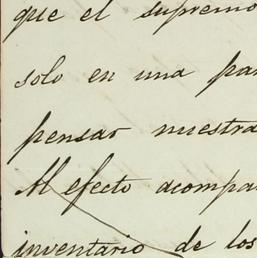 que el supremo
solo en una par
pensar nuestra
Al efecto acompa
inventario de los